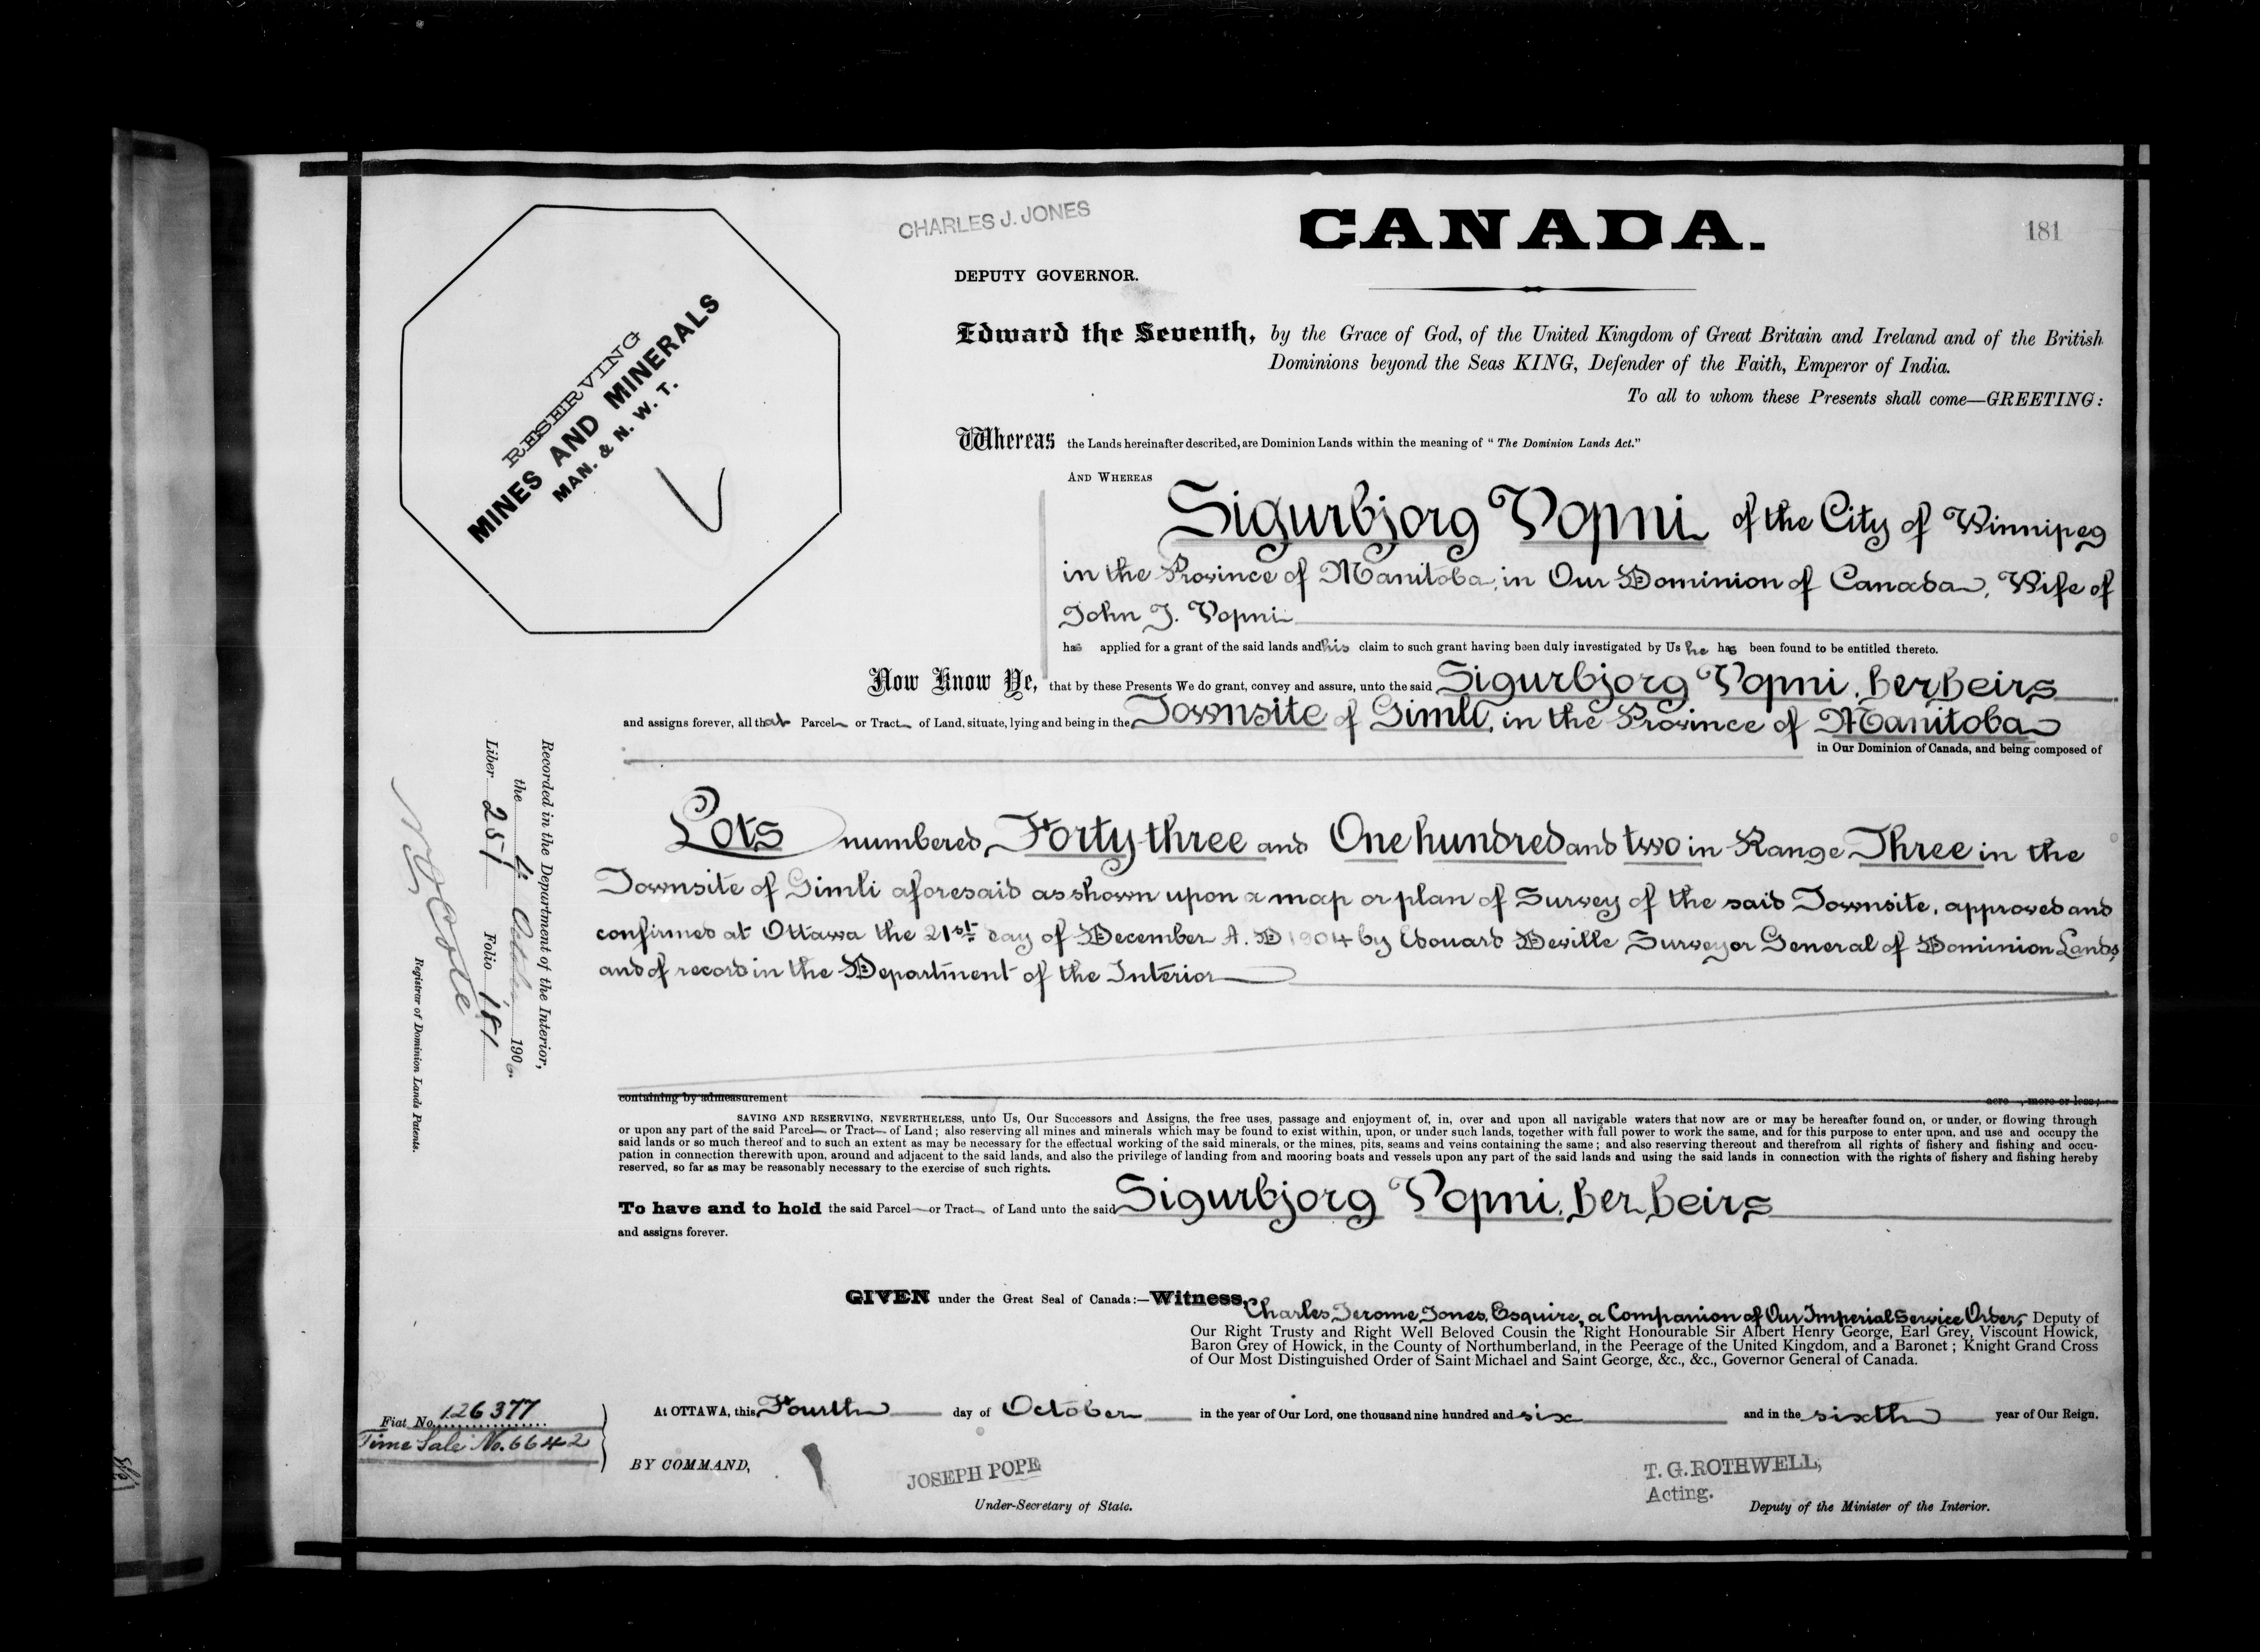 CHARLES J. JONES
CANADA.
181
DEPUTY GOVERNOR.
RESERVING
MINES AND MINERALS
MAN. & N. W. T.
Edward the Seventh, by the Grace of God, of the United Kingdom of Great Britain and Ireland and of the British
Dominions beyond the Seas KING, Defender of the Faith, Emperor of India.
To all to whom these Presents shall come—GREETING:
Whereas the Lands hereinafter described, are Dominion Lands within the meaning of "The Dominion Lands Act."
AND WHEREAS
Sigurbjorg Vopni of the City of Winnipeg
in the Province of Manitoba, in Our Dominion of Canada, Wife of
John J. Vopni
has applied for a grant of the said lands and his claim to such grant having been duly investigated by Us he has been found to be entitled thereto.
Now Know Ye, that by these Presents We do grant, convey and assure, unto the said Sigurbjorg Vopni, her heirs
and assigns forever, all that Parcel or Tract of Land, situate, lying and being in the Townsite of Gimli, in the Province of Manitoba
in Our Dominion of Canada, and being composed of
Lots numbered Forty-three and One hundred and two in Range Three in the
Townsite of Gimli aforesaid as shown upon a map or plan of Survey of the said Townsite, approved and
confirmed at Ottawa the 21st day of December A. D 1904 by Edouard Deville Surveyor General of Dominion Lands,
and of record in the Department of the Interior
containing by admeasurement acre , more or less;
SAVING AND RESERVING, NEVERTHELESS, unto Us, Our Successors and Assigns, the free uses, passage and enjoyment of, in, over and upon all navigable waters that now are or may be hereafter found on, or under, or flowing through
or upon any part of the said Parcel or Tract of Land; also reserving all mines and minerals which may be found to exist within, upon, or under such lands, together with full power to work the same, and for this purpose to enter upon, and use and occupy the
said lands or so much thereof and to such an extent as may be necessary for the effectual working of the said minerals, or the mines, pits, seams and veins containing the same; and also reserving thereout and therefrom all rights of fishery and fishing and occu-
pation in connection therewith upon, around and adjacent to the said lands, and also the privilege of landing from and mooring boats and vessels upon any part of the said lands and using the said lands in connection with the rights of fishery and fishing hereby
reserved, so far as may be reasonably necessary to the exercise of such rights.
To have and to hold the said Parcel or Tract of Land unto the said Sigurbjorg Vopni, her heirs
and assigns forever.
GIVEN under the Great Seal of Canada:—Witness, Charles Jerome Jones, Esquire, a Companion of Our Imperial Service Order, Deputy of
Our Right Trusty and Right Well Beloved Cousin the Right Honourable Sir Albert Henry George, Earl Grey, Viscount Howick,
Baron Grey of Howick, in the County of Northumberland, in the Peerage of the United Kingdom, and a Baronet; Knight Grand Cross
of Our Most Distinguished Order of Saint Michael and Saint George, &c., &c., Governor General of Canada.
At OTTAWA, this Fourth day of October in the year of Our Lord, one thousand nine hundred and six and in the sixth year of Our Reign.
Fiat No. 126377
Time Sale No. 6642
BY COMMAND,
JOSEPH POPE
Under-Secretary of State.
T. G. ROTHWELL,
Acting.
Deputy of the Minister of the Interior.
Recorded in the Department of the Interior,
the 4 October 1906.
Liber 257 Folio 181
Registrar of Dominion Lands Patents.